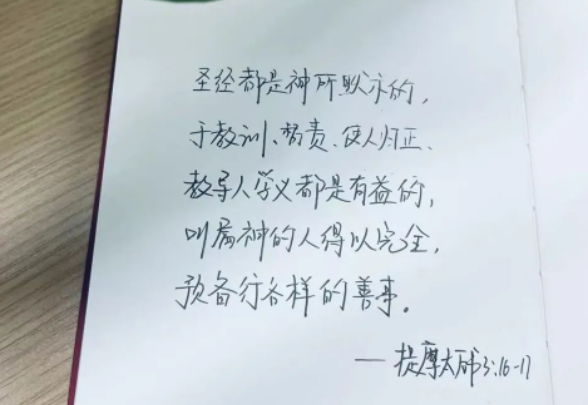 圣经都是神所默示的，
于教训、督责、使人归正、
教导人学义都是有益的，
叫属神的人得以完全，
预备行各样的善事。
——提摩太后书3:16-17